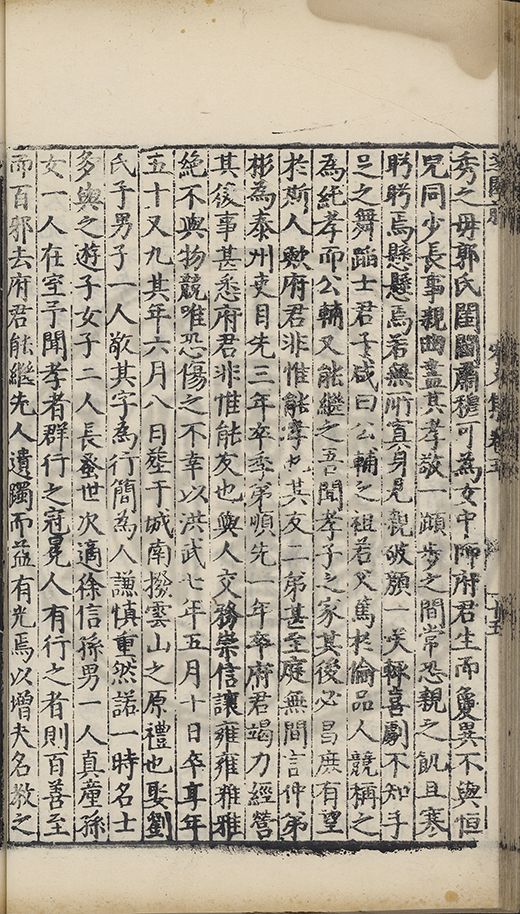 秀之毋郭氏閨闥肅穆可為女中師府君生而夐異不與恒
兒同少長事親曲盡其孝敬一蹞步之間常恐親之飢且寒
盻盻焉懸懸焉若無所寘身見親破顏一咲輒喜劇不知手
足之舞蹈士君子咸曰公輔之祖若父篤於倫品人競稱之
為純孝而公輔又能繼之吾聞孝子之家其後必昌庶有望
於斯人歟府君非惟能孝尤其友二弟甚至庭無間言仲弟
彬為泰州吏目先三年卒季弟順先一年卒府君竭力經營
其後事甚悉府君非惟能友也與人交務崇信讓雍雍雅雅
絶不與物競唯恐傷之不幸以洪武七年五月十日卒享年
五十又九其年六月八日塟于城南撥雲山之原禮也娶劉
氏子男子一人敬其字為行簡為人謙慎重然諾一時名士
多與之遊子女子二人長蚤世次適徐信孫男一人真童孫
女一人在室予聞孝者群行之冠冕人有行之者則百善至
而百邪去府君能繼先人遺躅而益有光焉以增夫名教之